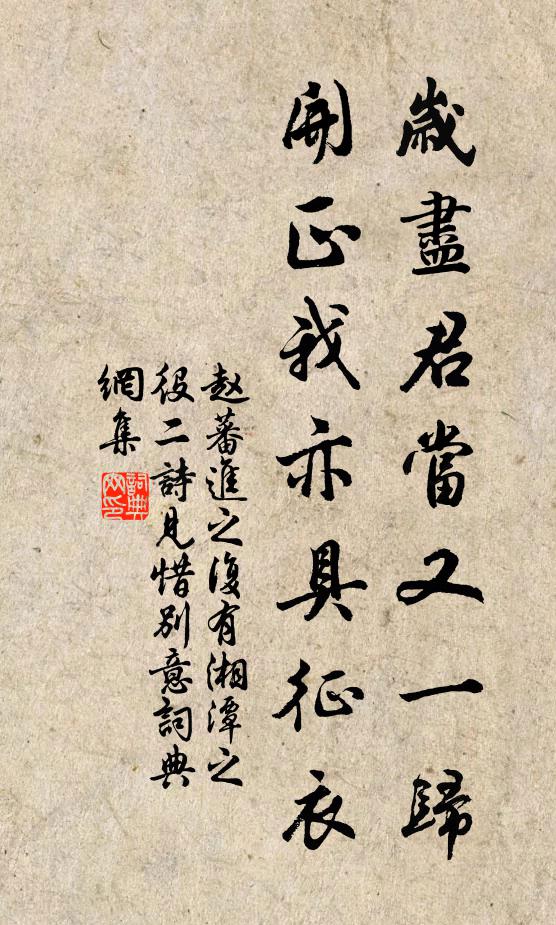 歲盡君當又一歸
開正我亦具征衣
赵蕃進之復有湘潭之
役二詩見惜別意詞典
網集
詞典
网印